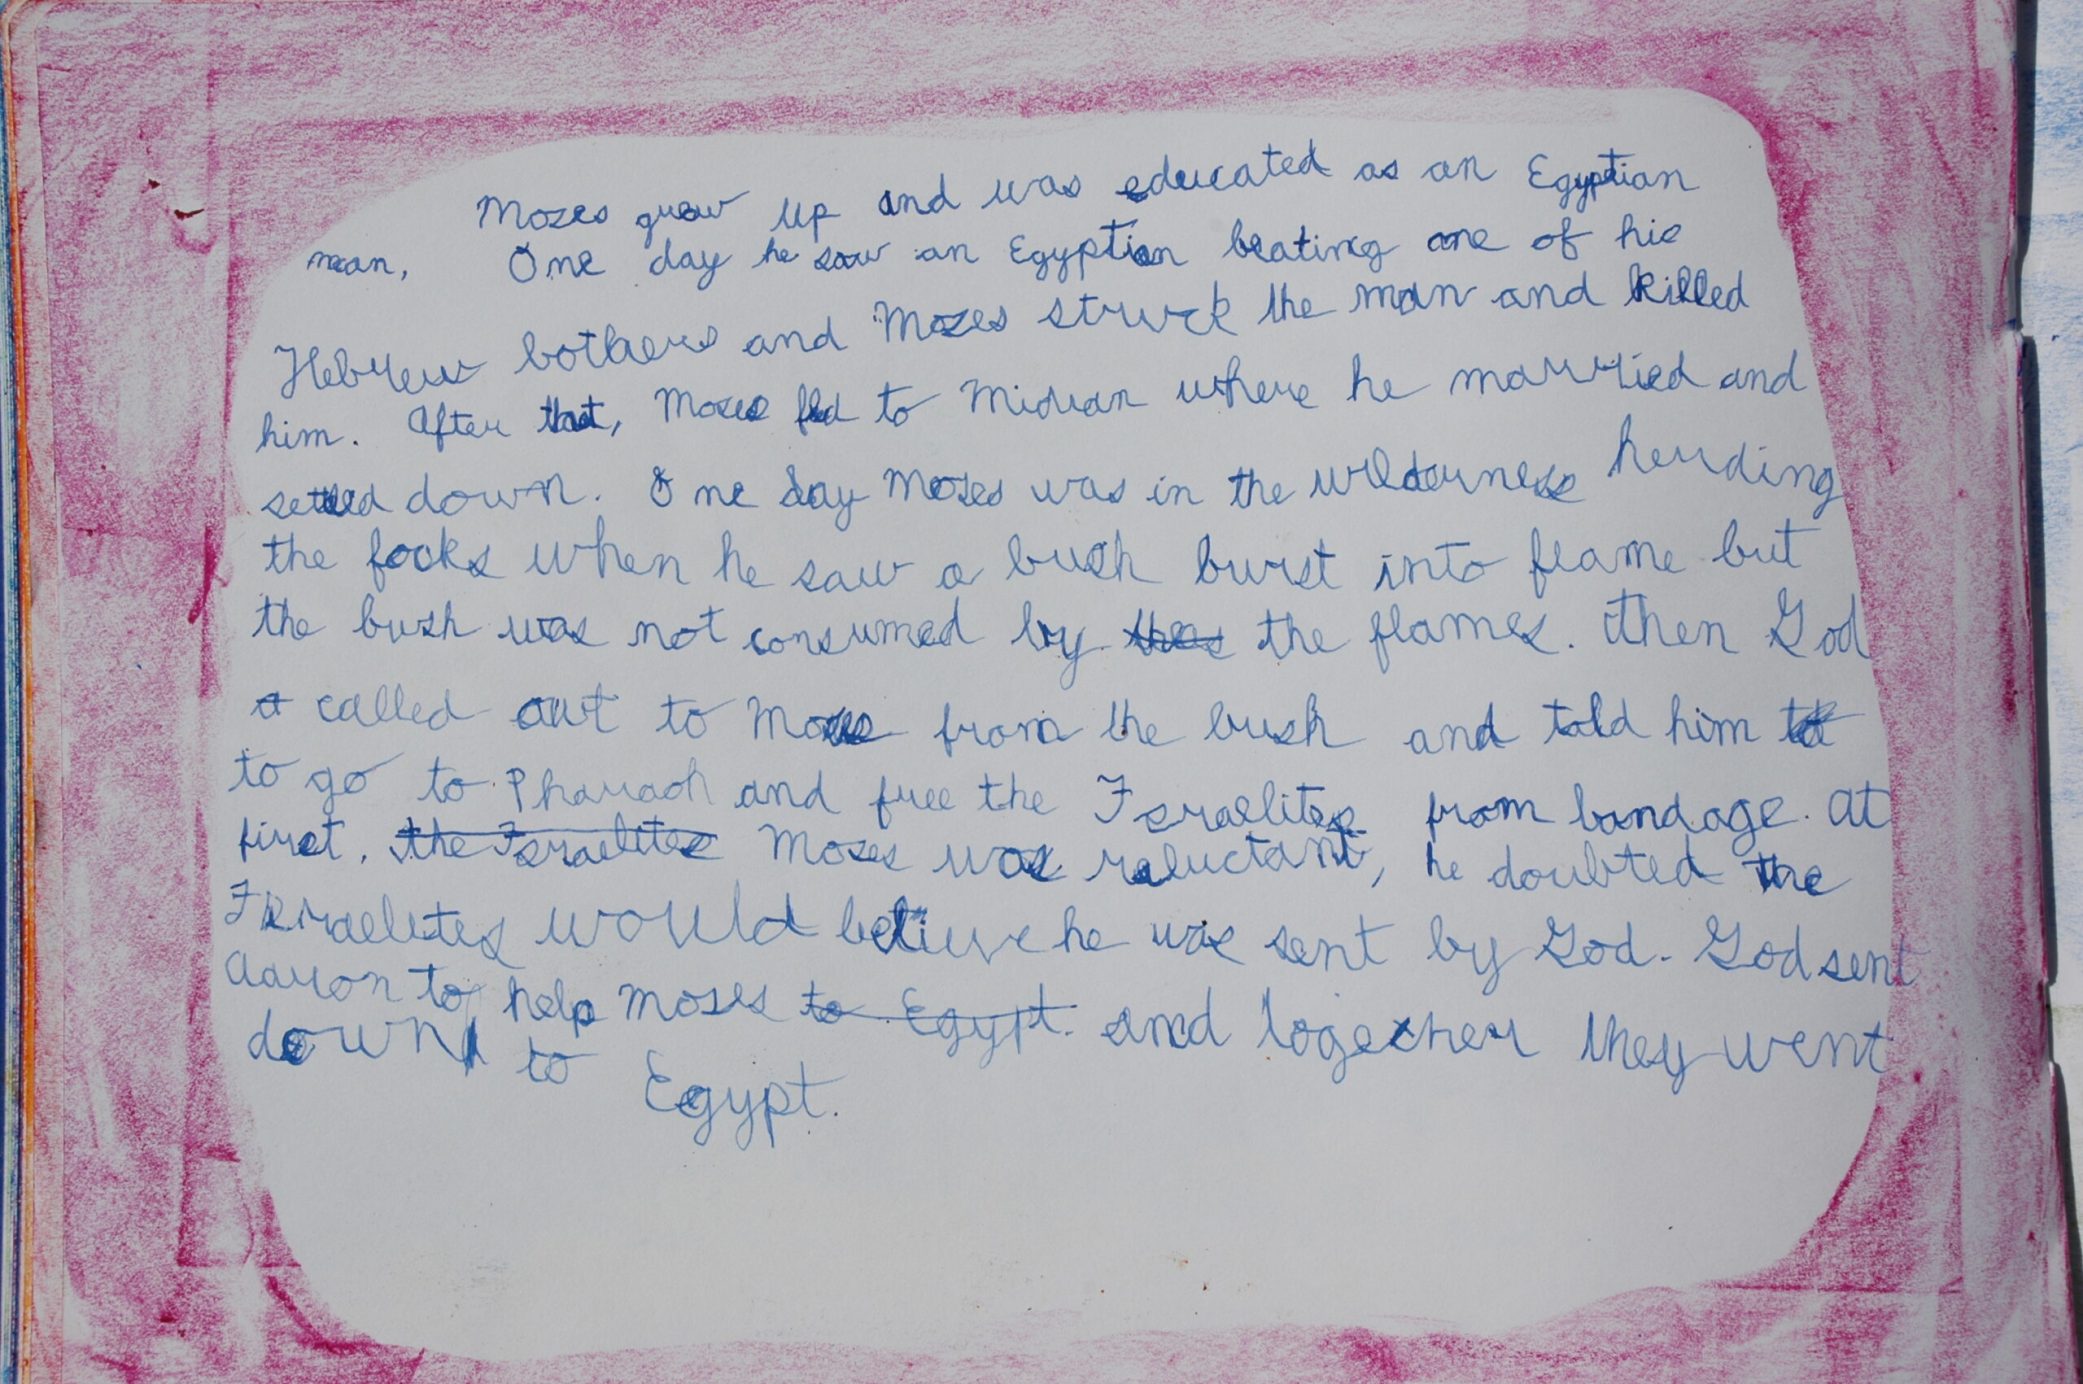 Mozes grew up and was educated as an Egyptian
man, One day he saw an Egyptian beating one of his
Hebrew bothers and Mozes struck the man and killed
him. After that, Mozes fled to Midian where he married and
settled down. One day Mozes was in the wilderness herding
the focks when he saw a bush burst into flame but
the bush was not consumed by the flames. Then God
called out to Moses from the bush and told him
to go to Pharaoh and free the Israelites from bondage. At
first, the Israelites Moses was reluctant, he doubted the
Israelites would believe he was sent by God. God sent
Aaron to help Moses to Egypt. and together they went
down to Egypt.